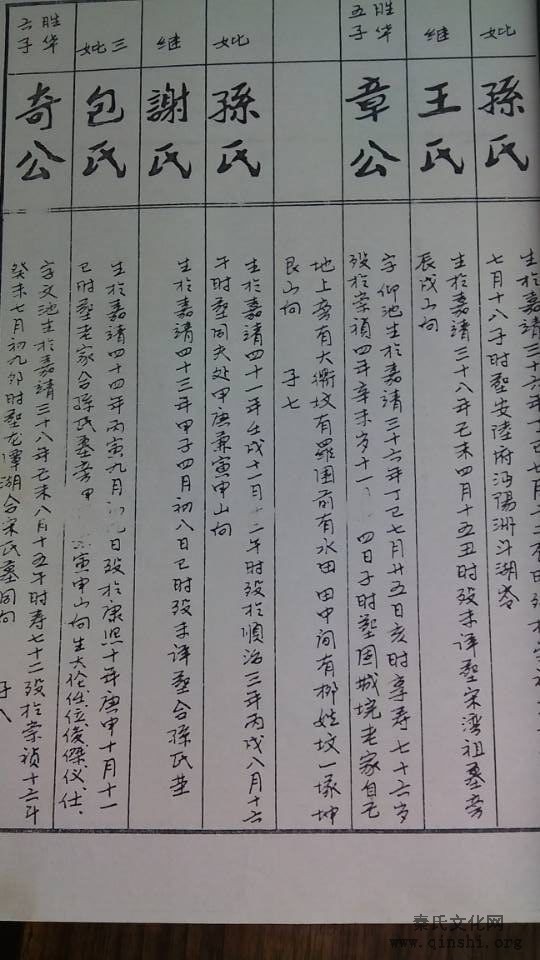 妣
孫氏
生於嘉靖三十六年丁巳七月
七月十八子时塟安陸府沔陽洲斗湖岺
继
王氏
生於嘉靖三十八年己未四月十五丑时殁未详塟宋湾祖墓旁
辰戌山向
胜华五子
章公
字仰池生於嘉靖三十六年丁巳七月廿五日亥时享寿七十六岁
殁於崇禎四年辛未岁十 四日子时塟园城垸老家自己
地上旁有大塚坟有羅围前有水田田中间有柳姓坟一塚坤
艮山向 子七
妣
孫氏
生於嘉靖四十一年壬戌十一月十二午时殁於順治三年丙戌八月十六
午时塟同夫处甲庚兼寅申山向
继
謝氏
生於嘉靖四十三年甲子四月初八日巳时殁未详塟合孫氏茔
三妣
包氏
生於嘉靖四十四年丙寅九月 日殁於康熙十年庚申十月十一
巳时塟老家合孫氏墓旁甲 寅申山向生大伦任位俊傑仪仕
胜华六子
奇公
字文池生於嘉靖三十八年己未八月十五午时寿七十二殁於崇禎十六年
癸未七月初九卯时塟龙潭湖合宋氏墓同向 子八
秦氏文化网
www.qinshi.org